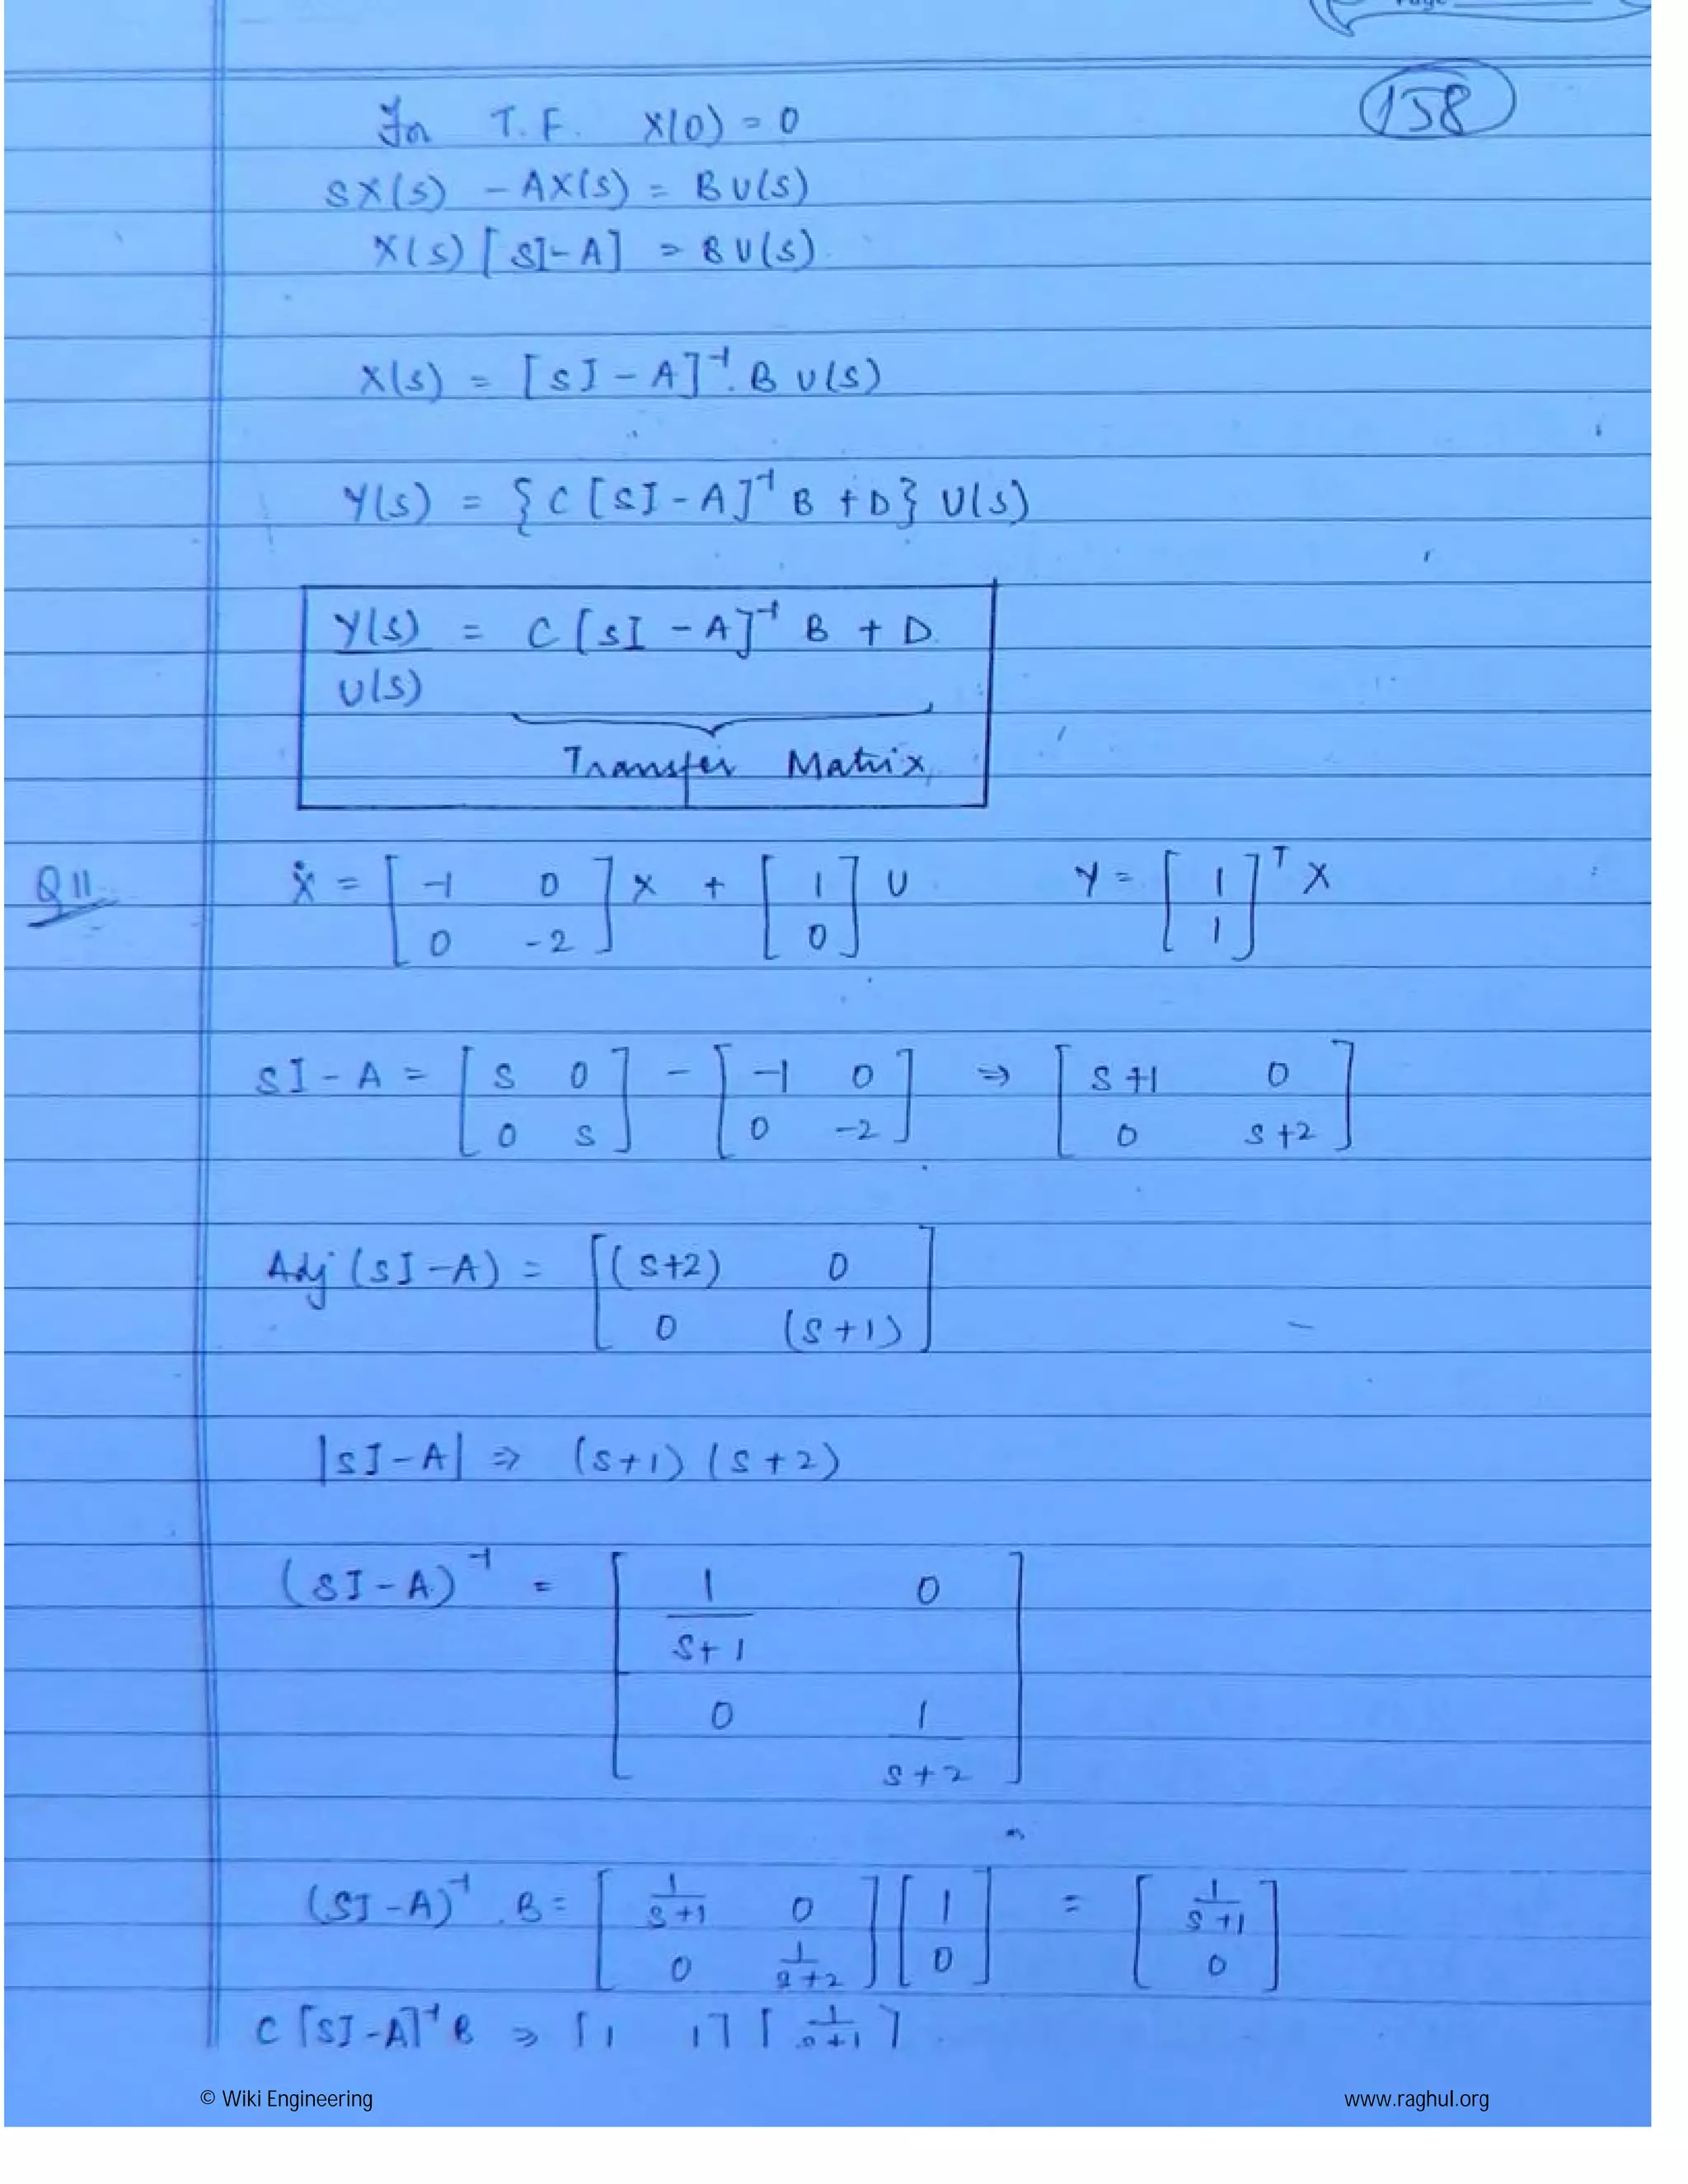 Page
158
For T.F. X(0) = 0
SX(s) - AX(s) = BU(s)
X(s) [SI - A] = BU(s)
X(s) = [sI - A]⁻¹. B U(s)
Y(s) = {C [SI - A]⁻¹ B + D} U(s)
Y(s) = C [sI - A]⁻¹ B + D
U(s)
Transfer Matrix
Q11. Ẋ = [ -1 0 ] X + [ 1 ] U Y = [ 1 ]ᵀ X
[ 0 -2 ] [ 0 ] [ 1 ]
SI - A = [ S 0 ] - [ -1 0 ] ⇒ [ S+1 0 ]
[ 0 S ] [ 0 -2 ] [ 0 S+2 ]
Adj (SI - A) = [ (S+2) 0 ]
[ 0 (S+1) ]
|SI - A| ⇒ (S+1) (S+2)
(SI - A)⁻¹ = [ 1 0 ]
S+1
0 1
S+2
(SI - A)⁻¹ . B = [ 1/S+1 0 ] [ 1 ] = [ 1/S+1 ]
[ 0 1/S+2 ] [ 0 ] [ 0 ]
C [SI - A]⁻¹ B ⇒ [ 1 1 ] [ 1/S+1 ]
© Wiki Engineering www.raghul.org